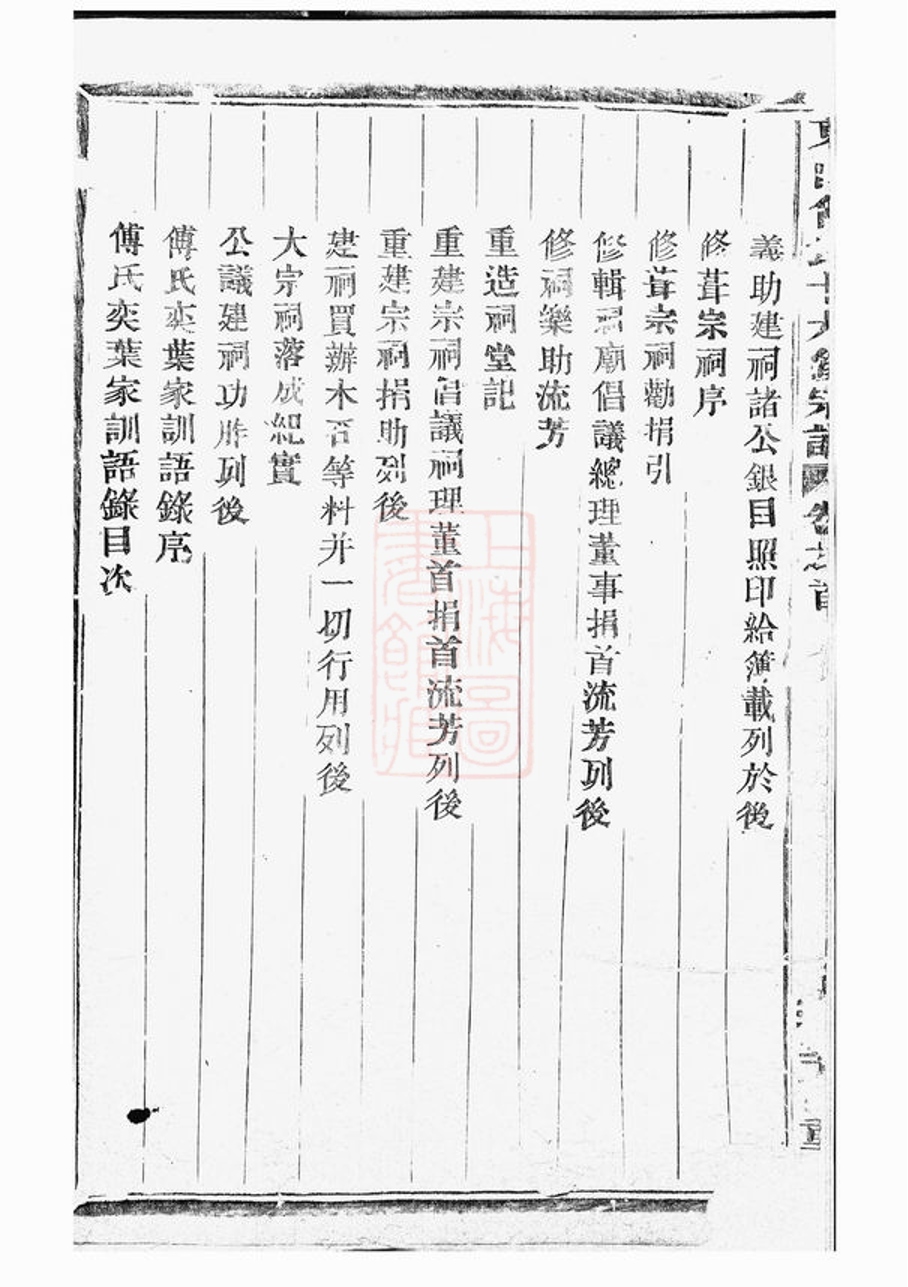 義助建祠諸公銀目照印給簿載列於後
修葺宗祠序
修葺宗祠勸捐引
修輯祠廟倡議總理董事捐首流芳列後
修祠樂助流芳
重造祠堂記
重建宗祠倡議祠理董首捐首流芳列後
重建宗祠捐助列後
建祠買辦木石等料并一切行用列後
大宗祠落成紀實
公議建祠功胙列後
傅氏奕葉家訓語錄序
傅氏奕葉家訓語錄目次
宗譜 卷之首
上海圖書館藏